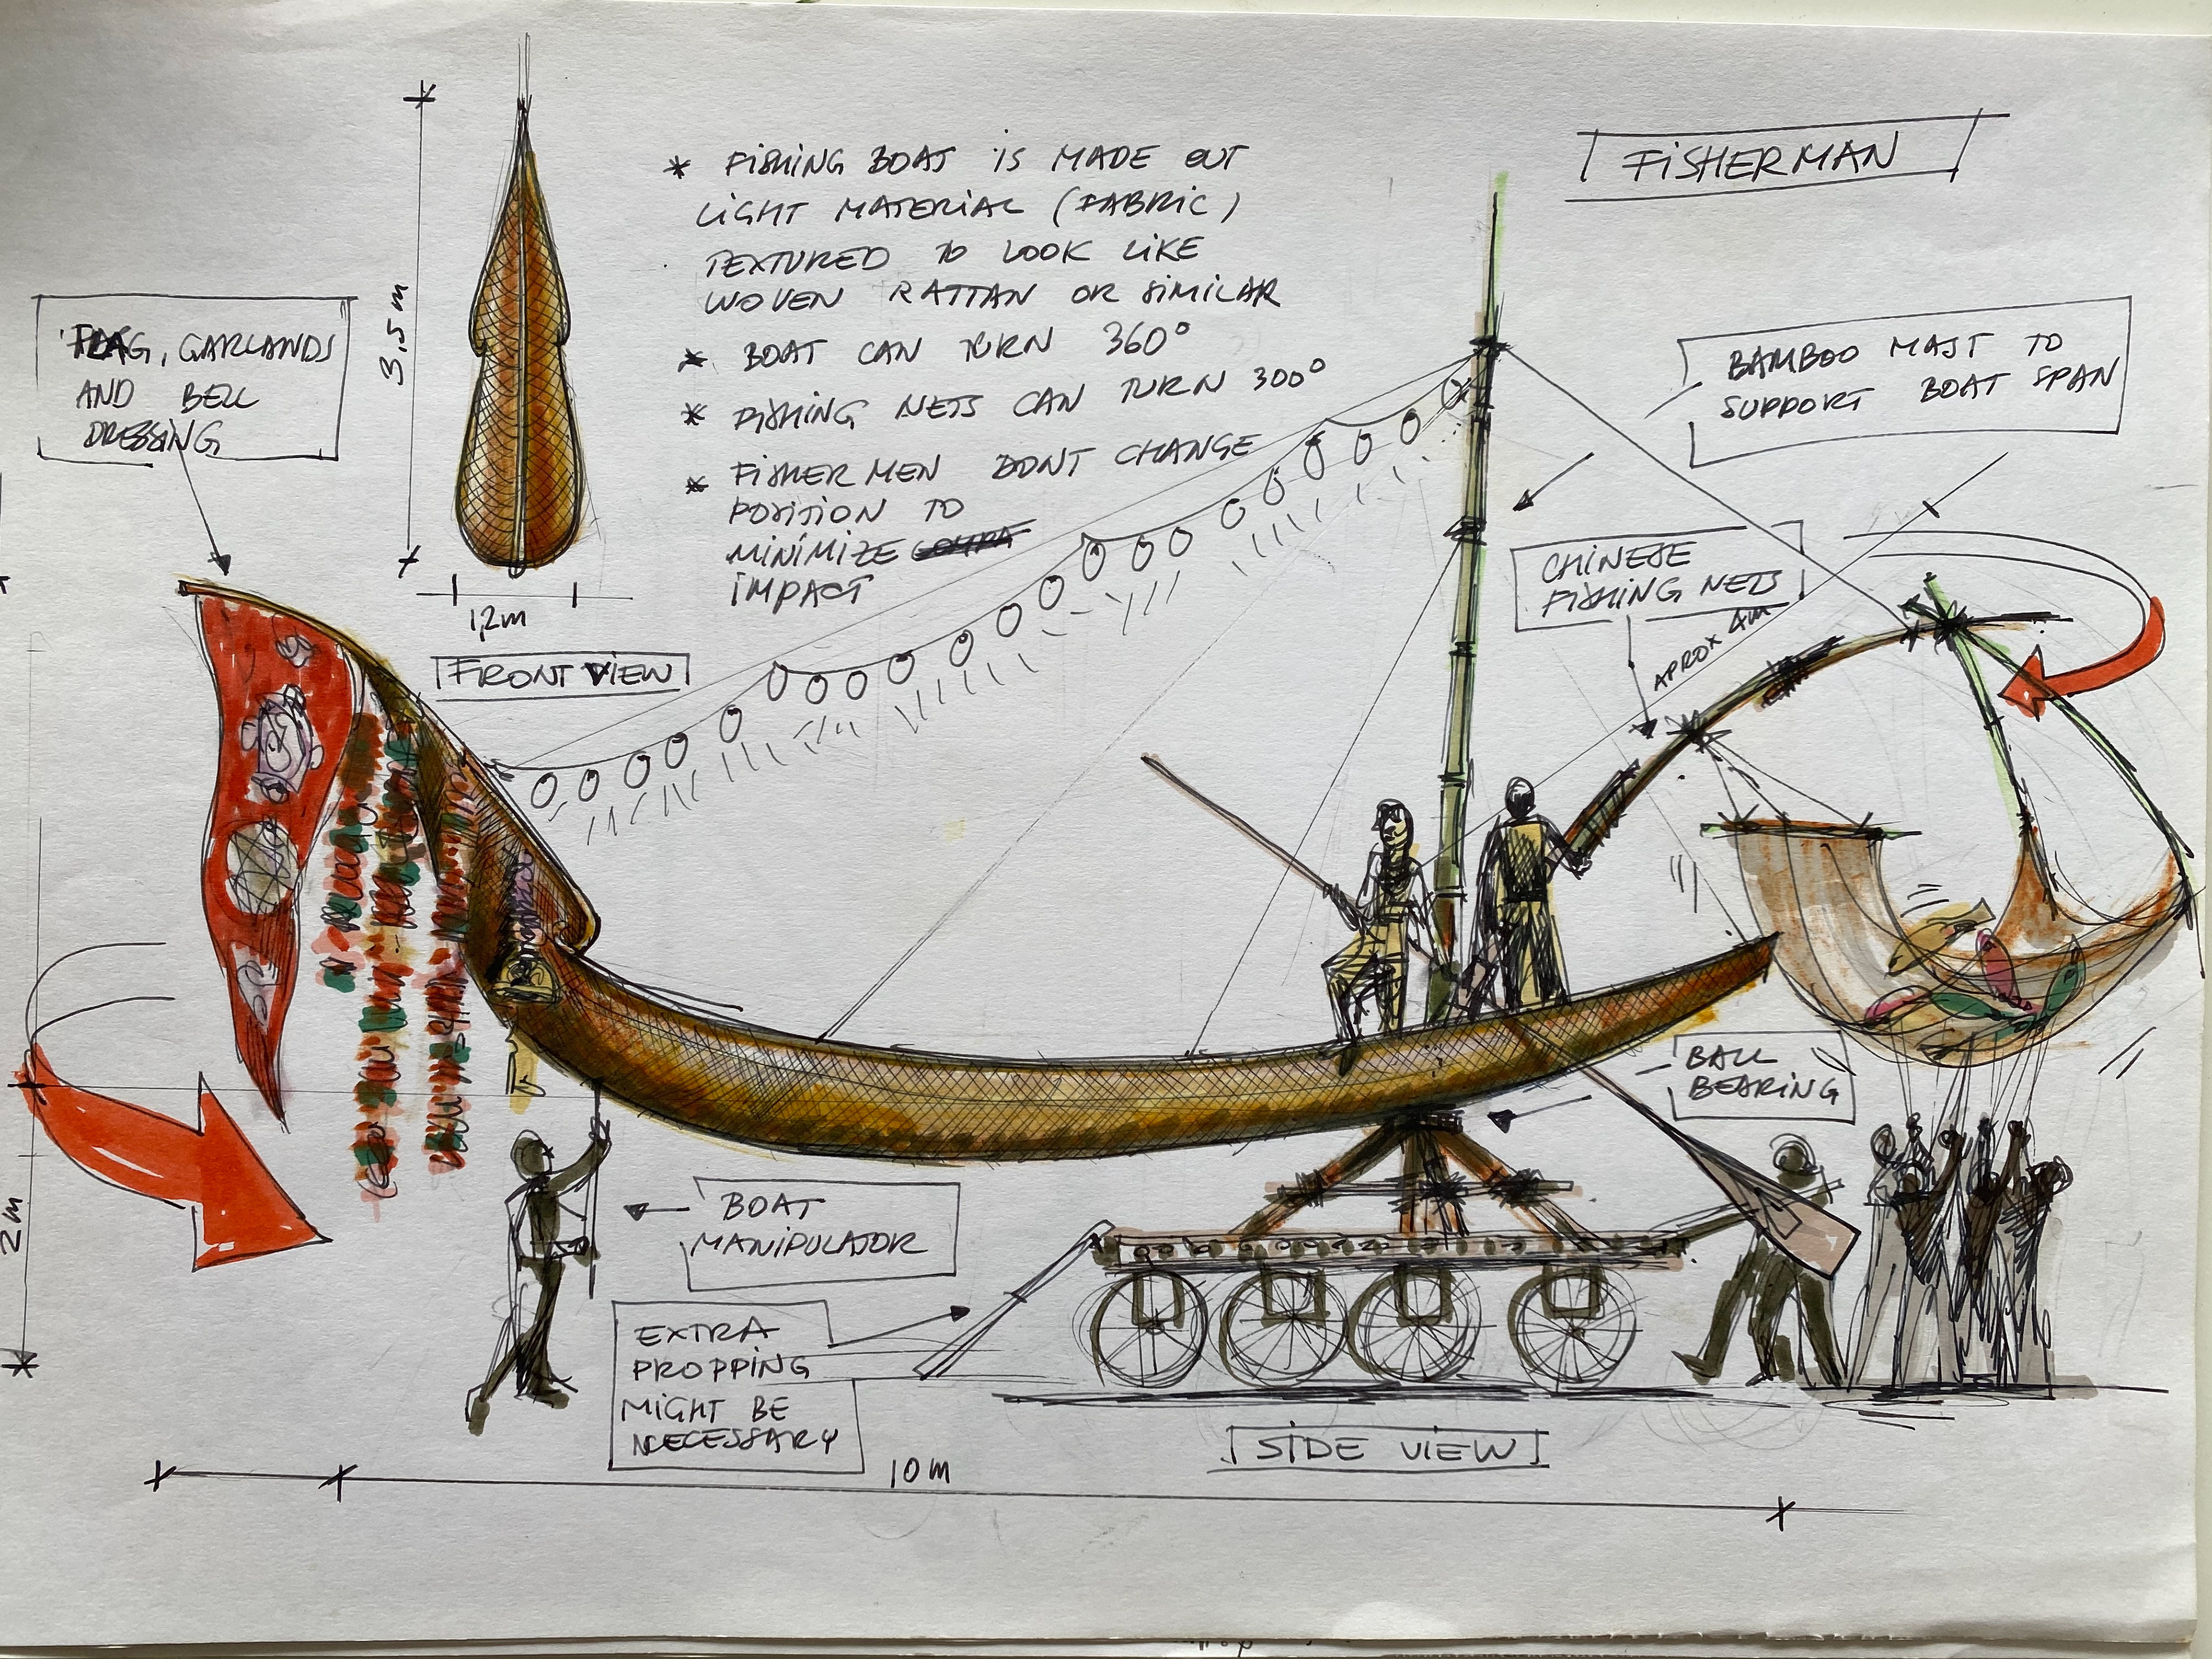 FISHERMAN
* FISHING BOAT IS MADE OUT
LIGHT MATERIAL (FABRIC)
TEXTURED TO LOOK LIKE
WOVEN RATTAN OR SIMILAR
* BOAT CAN TURN 360°
* FISHING NETS CAN TURN 300°
* FISHER MEN DONT CHANGE
POSITION TO
MINIMIZE
IMPACT
FLAG, GARLANDS
AND BELL
DRESSING
3,5 m
1,2m
FRONT VIEW
BAMBOO MAST TO
SUPPORT BOAT SPAN
CHINESE
FISHING NETS
APROX 4m
BALL
BEARING
BOAT
MANIPULATOR
EXTRA
PROPPING
MIGHT BE
NECESSARY
2m
10 m
SIDE VIEW